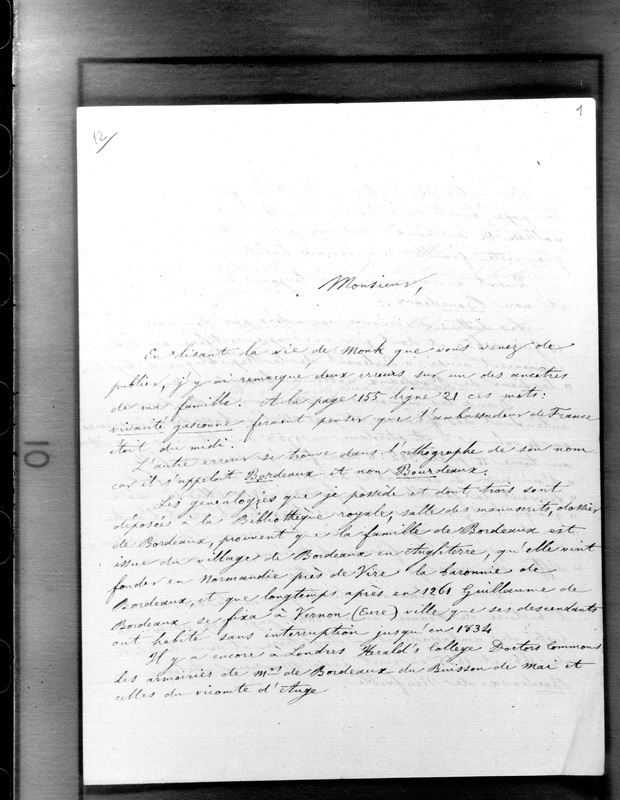 12/
1
Monsieur,
En lisant la vie de Monk que vous venez de
publier, j'y ai remarqué deux erreurs sur un des ancêtres
de ma famille. A la page 155 ligne 21 ces mots:
vivacité gasconne feraient penser que l'ambassadeur de France
était du midi.
L'autre erreur se trouve dans l'orthographe de son nom
car il s'appelait Bordeaux et non Bourdeaux.
Les généalogies que je possède et dont trois sont
déposées à la Bibliothèque royale, salle des manuscrits, dossier
de Bordeaux, prouvent que la famille de Bordeaux est
issue du village de Bordeaux en Angleterre, qu'elle vint
fonder en Normandie près de Vire la baronnie de
Bordeaux, et que longtemps après en 1261 Guillaume de
Bordeaux se fixa à Vernon (Eure) ville que ses descendants
ont habité sans interruption jusqu'en 1834
Il y a encore à Londres Herald's College Doctors Commons
les armoiries de Mrs de Bordeaux du Buisson de Mai et
celles du vicomte d'Auge
10